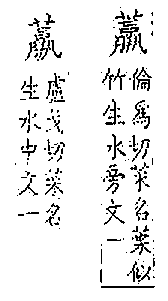 倫為切菜名葉似
竹生水旁文一
盧戈切菜名
生水中文一